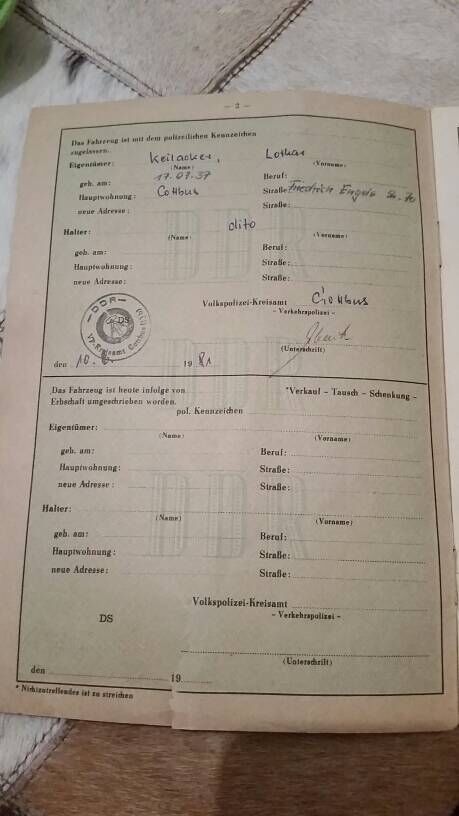 – 2 –
Das Fahrzeug ist mit dem polizeilichen Kennzeichen
zugelassen.
Eigentümer: Keilacker, Lothar
(Name) (Vorname)
geb. am: 17.07.37 Beruf:
Hauptwohnung: Cottbus Straße: Friedrich Engels
neue Adresse: Straße:
Halter: dito
(Name) (Vorname)
geb. am: Beruf:
Hauptwohnung: Straße:
neue Adresse: Straße:
Volkspolizei-Kreisamt Cottbus
– Verkehrspolizei –
DDR
DS
VP-Kreisamt Cottbus
(Unterschrift)
den 10. 1981
Das Fahrzeug ist heute infolge von *Verkauf – Tausch – Schenkung –
Erbschaft umgeschrieben worden.
pol. Kennzeichen
Eigentümer:
(Name) (Vorname)
geb. am: Beruf:
Hauptwohnung: Straße:
neue Adresse: Straße:
Halter:
(Name) (Vorname)
geb. am: Beruf:
Hauptwohnung: Straße:
neue Adresse: Straße:
Volkspolizei-Kreisamt
DS – Verkehrspolizei –
(Unterschrift)
den 19
* Nichtzutreffendes ist zu streichen
DDR
DDR
DDR